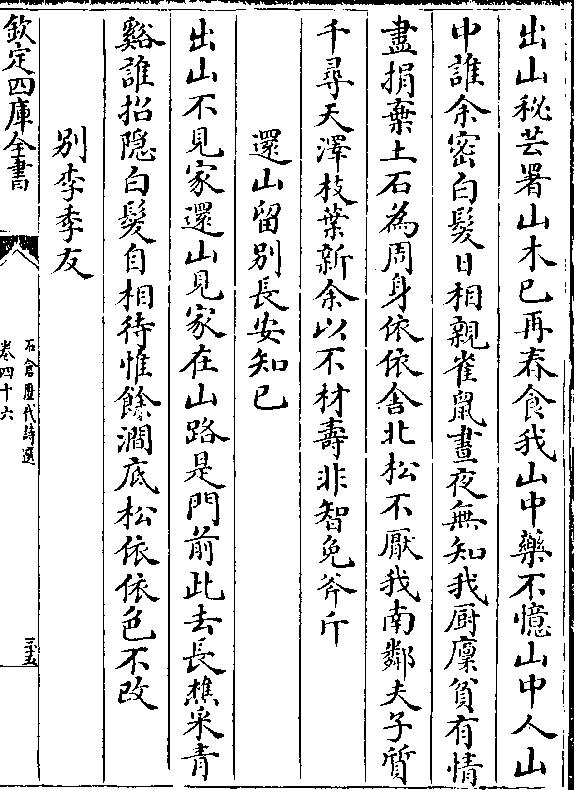 出山秘芸署山木已再春食我山中藥不憶山中人山
中誰余密白髮日相親雀鼠晝夜無知我厨廩貧有情
盡捐棄土石為周身依依舍北松不厭我南鄰夫子質
千尋天澤枝葉新余以不材壽非智免斧斤
還山留别長安知己
出山不見家還山見家在山路是門前此去長樵采青
谿誰招隠白髮自相待惟餘澗底松依依色不改
别李季友
欽定四庫全書
石倉歴代詩選
卷四十六
三五